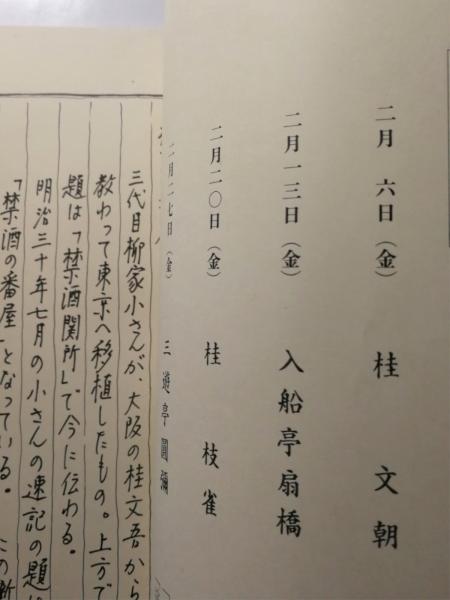 二月 六日(金) 桂 文朝
二月一三日(金) 入船亭扇橋
二月二〇日(金) 桂 枝雀
二月二七日(金) 三遊亭圓彌
三代目柳家小さんが、大阪の桂文吾から
教わって東京へ移植したもの。上方で
題は「禁酒関所」で今に伝わる。
明治三十年七月の小さんの速記の題は
「禁酒の番屋」となっている。この所